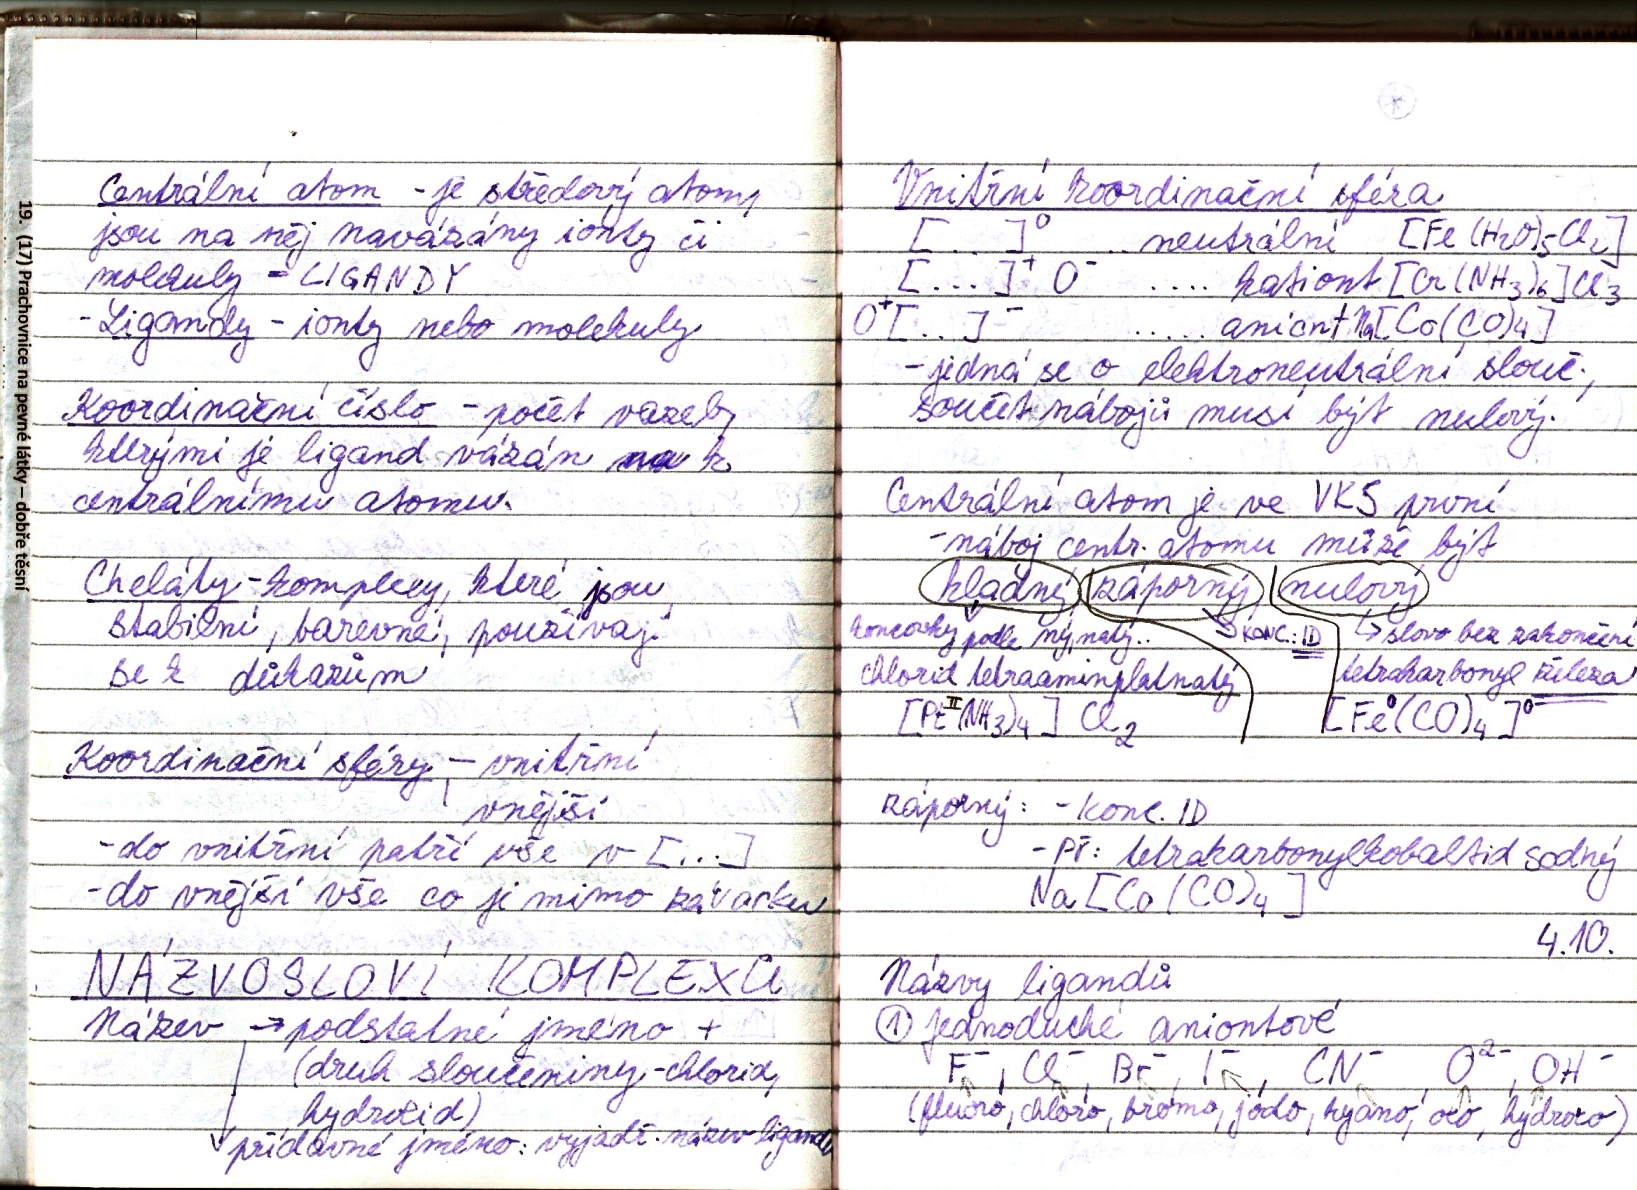 19. (17) Prachovnice na pevné látky – dobře těsní
Centrální atom - je středový atom,
jsou na něj navázány ionty či
molekuly - LIGANDY
- Ligandy - ionty nebo molekuly
Koordinační číslo - počet vazeb,
kterými je ligand vázán k
centrálnímu atomu.
Cheláty - komplexy, které jsou
stabilní, barevné, používají
se k důkazům
Koordinační sféry - vnitřní
vnější
- do vnitřní patří vše v [...]
- do vnější vše co je mimo závorku
NÁZVOSLOVÍ KOMPLEXŮ
Název → podstatné jméno +
(druh sloučeniny - chlorid,
hydroxid)
přídavné jméno: vyjádř. název ligandu
Vnitřní koordinační sféra
[... ]⁰ ... neutrální [Fe(H₂O)₅Cl₂]
[...]⁺ O⁻ .... kationt [Cr(NH₃)₆]Cl₃
O⁺[...]⁻ ...... aniont Na[Co(CO)₄]
- jedná se o elektroneutrální slouč.,
součet nábojů musí být nulový.
Centrální atom je ve VKS první
- náboj centr. atomu může být
kladný záporný nulový
koncovky podle ný, natý.. → KONC.: ID ↳ slovo bez zakončení
chlorid tetraaminplatnatý tetrakarbonyl železa
[Ptᴵᴵ(NH₃)₄] Cl₂ [Fe⁰(CO)₄]⁰
záporný: - konc. ID
- Př: tetrakarbonylkobaltid sodný
Na [Co(CO)₄]
4.10.
Názvy ligandů
① jednoduché aniontové
F⁻, Cl⁻, Br⁻, I⁻ CN⁻ O²⁻, OH⁻
(fluoro, chloro, bromo, jodo, kyano, oxo, hydroxo)